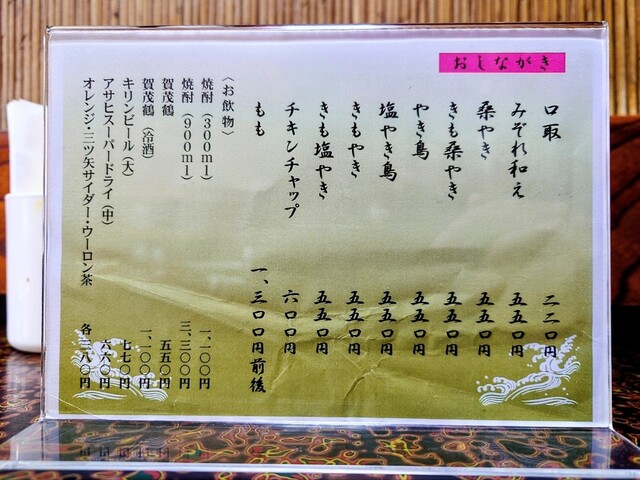 おしながき
口取 二二〇円
みぞれ和え 五五〇円
桑やき 五五〇円
きも桑やき 五五〇円
やき鳥 五五〇円
塩やき鳥 五五〇円
きもやき 五五〇円
きも塩やき 五五〇円
チキンチャップ 六〇〇円
もも 一、三〇〇円前後
〈お飲物〉
焼酎（300ml） 一、一〇〇円
焼酎（900ml） 三、三〇〇円
賀茂鶴 五五〇円
賀茂鶴（冷酒） 一、一〇〇円
キリンビール（大） 七七〇円
アサヒスーパードライ（中） 六六〇円
オレンジ・三ツ矢サイダー・ウーロン茶 各 三八〇円